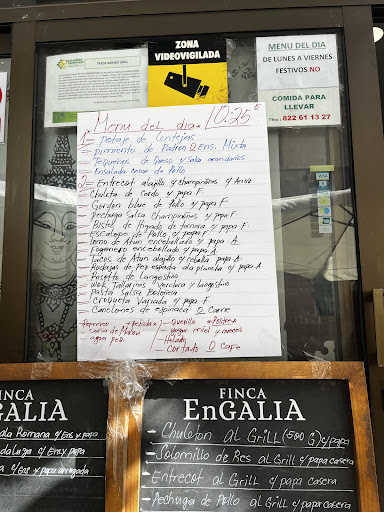 ZONA
VIDEOVIGILADA
MENU DEL DIA
DE LUNES A VIERNES
FESTIVOS NO
COMIDA PARA
LLEVAR
822 61 13 27
Menu del dia. 10.25€
1= potaje de Lentejas
= pimiento de Padron O ens. Mixta
= Tequeños de Queso y salsa arandanos
= Ensalada cesar de Pollo
2= Entrecot alajillo y champiñones y Arroz
= Chuleta de Cerdo y papa F
= Gordon blue de Pollo y papa F.
= Pechuga Salsa Champiñones y papa F
= Bistel de Higado de ternera y papa F.
= Escalope de Pollo y papa F
= Lomo de Atun encebollado y papa. A.
= Fogonero encebollado y papa. A
= Tacos de Atun alajillo y papa. A
= Rodajas de Pez espada ala plancha y papa. A
= Risotto de Langostino
= Wok Tallarines Verdura y Langostino
= Pasta Salsa Boloñesa
= Croqueta Variada y papa F.
= Canelones de espinaca O Carne
Refresco
+ bebidas
+ Postre
- Quesillo
- Yogur miel y nueces
- Helado
- Cortado O Cafe
agua peq.
FINCA
EnGALIA
da Romana c/ Ens y papa
daluza c/ Ens y papa
a c/ Ens y papa arrugada
FINCA
EnGALIA
- Chuleton al GrilL (500 G) c/ papa
- Solomillo de Res al Grill c/ papa casera
- Entrecot al Grill c/ papa casera
- Pechuga de Pollo al Grill c/ papa casera